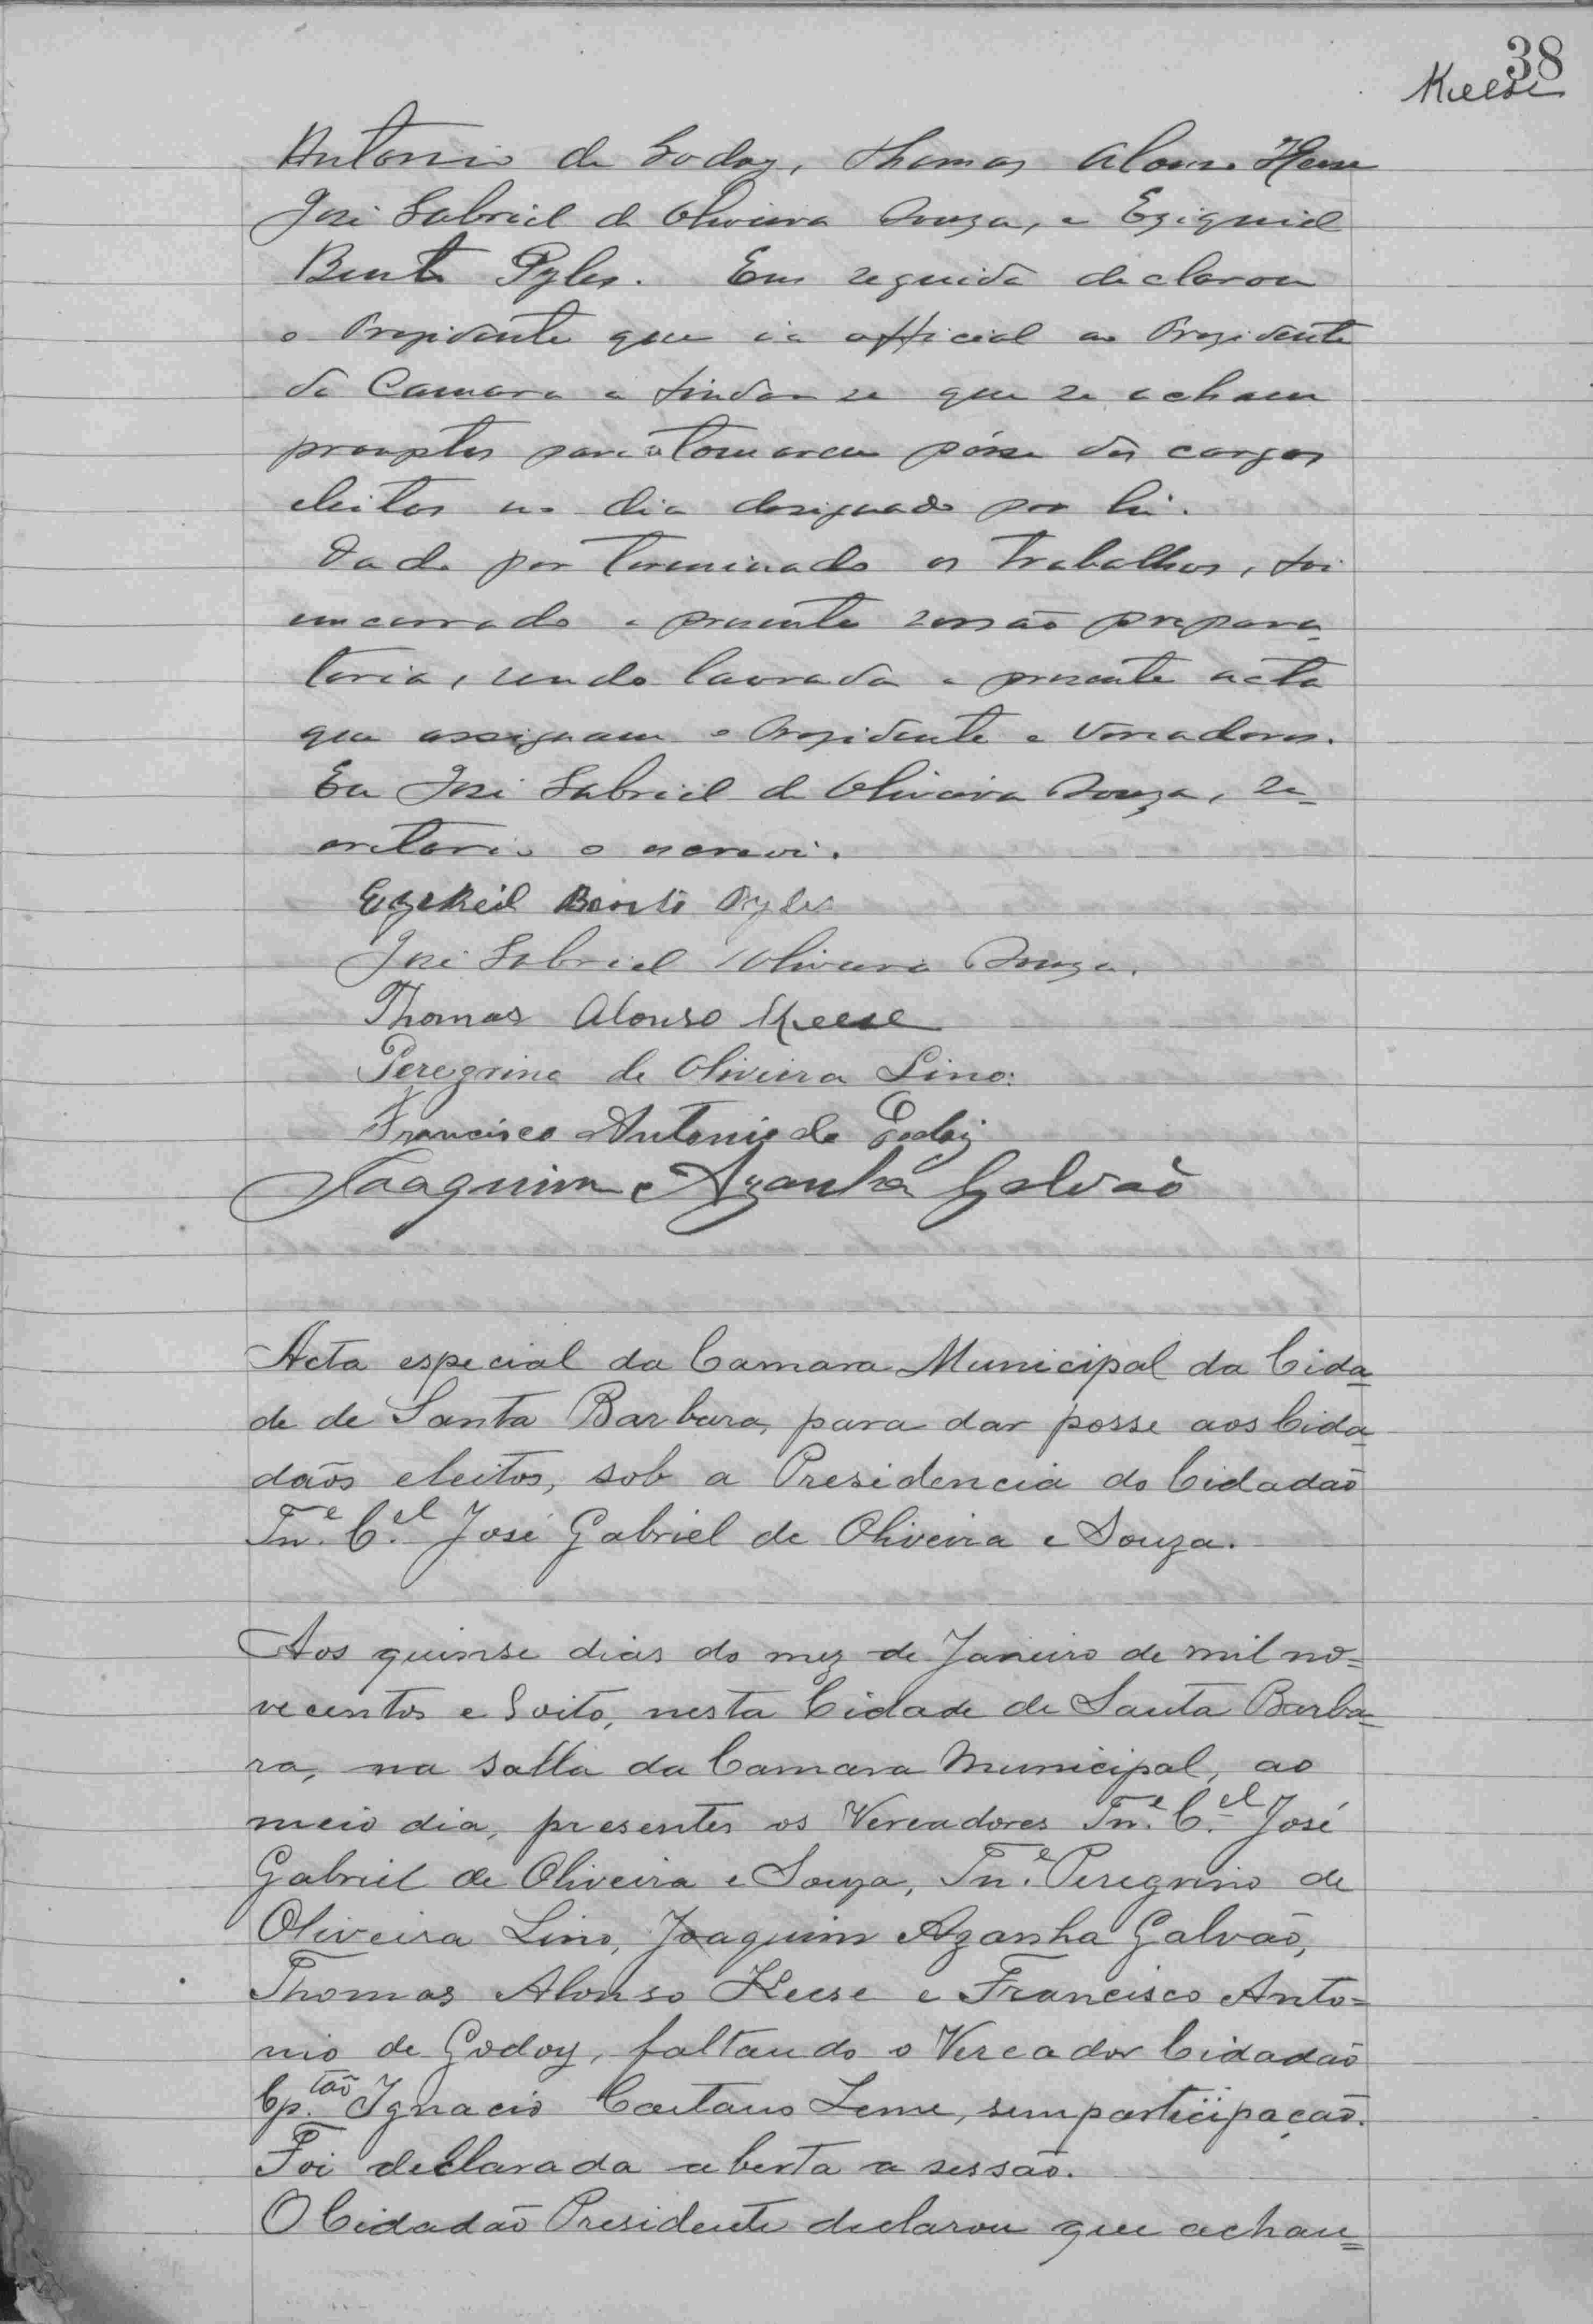 38
Keese
Antonio de Godoy, Thomas Alonso Keese
José Gabriel de Oliveira Souza, e Eziquiel
Bento Pyles. Em seguida declarou
o Prezidente que ia officiar ao Prezidente
da Camara a findar-se que se acham
promptos para tomarem pósse dos cargos
eleitos no dia designado por lei.
Dado por terminado os trabalhos, foi
encerrado a presente sessão prepara
toria, sendo lavrada a presente acta
que assignam o Prezidente e Vereadores.
Eu José Gabriel de Oliveira Souza, se=
cretario o escrevi.
Ezekeil Bento Pyles
José Gabriel Oliveira Souza.
Thomas Alonso Keese
Peregrino de Oliveira Lino.
Francisco Antonio de Godoy
Joaquim Azanha Galvão
Acta especial da Camara Municipal da Cida
de de Santa Barbara, para dar posse aos Cida
dãos eleitos, sob a Presidencia do Cidadão
Tn.e C.el José Gabriel de Oliveira e Souza.
Aos quinse dias do mez de Janeiro de mil no=
vecentos e oito, nesta Cidade de Santa Barba=
ra, na salla da Camara Municipal, ao
meio dia, presentes os Vereadores Tn.e C.el José
Gabriel de Oliveira e Souza, Tn.e Peregrino de
Oliveira Lino, Joaquim Azanha Galvão,
Thomas Alonso Keese e Francisco Anto=
nio de Godoy, faltando o Vereador Cidadão
Cp.tão Ignacio Caetano Leme, sem participação.
Foi declarada aberta a sessão.
O Cidadão Presidente declarou que achan=